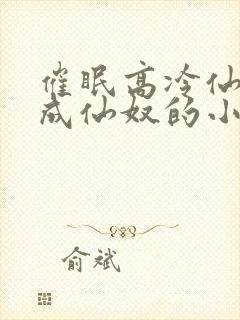 催眠高冷仙
成仙奴的小
俞斌